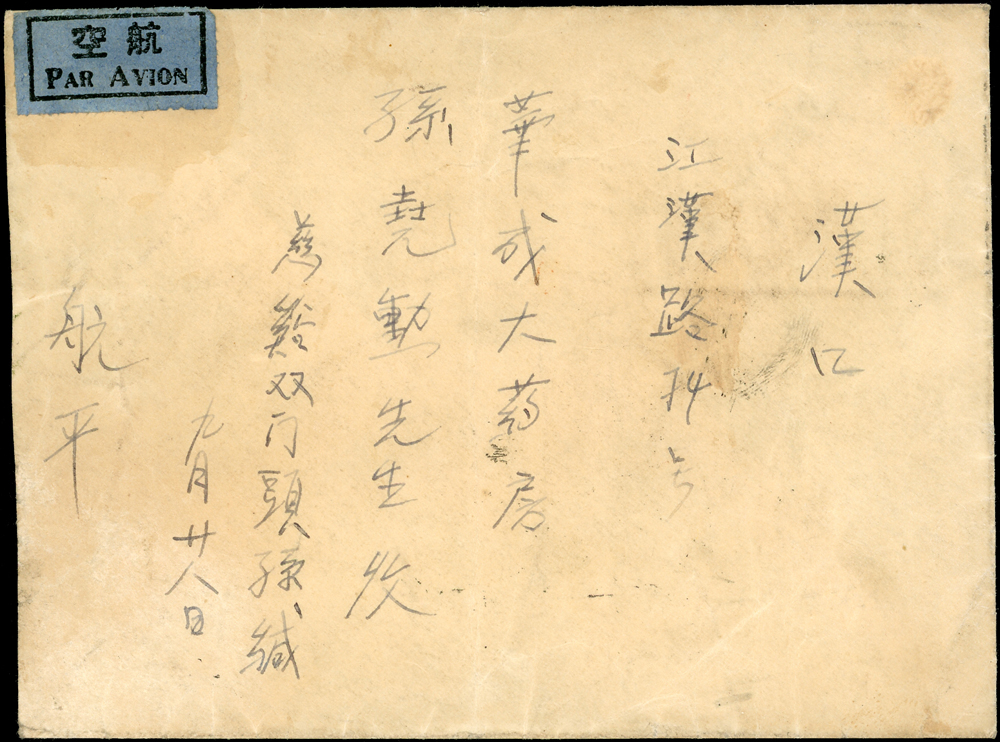 航空
PAR AVION
漢口
江漢路 号
華成大药房
孫堯勳先生收
慈谿双门頭孫缄
九月廿八日
航平